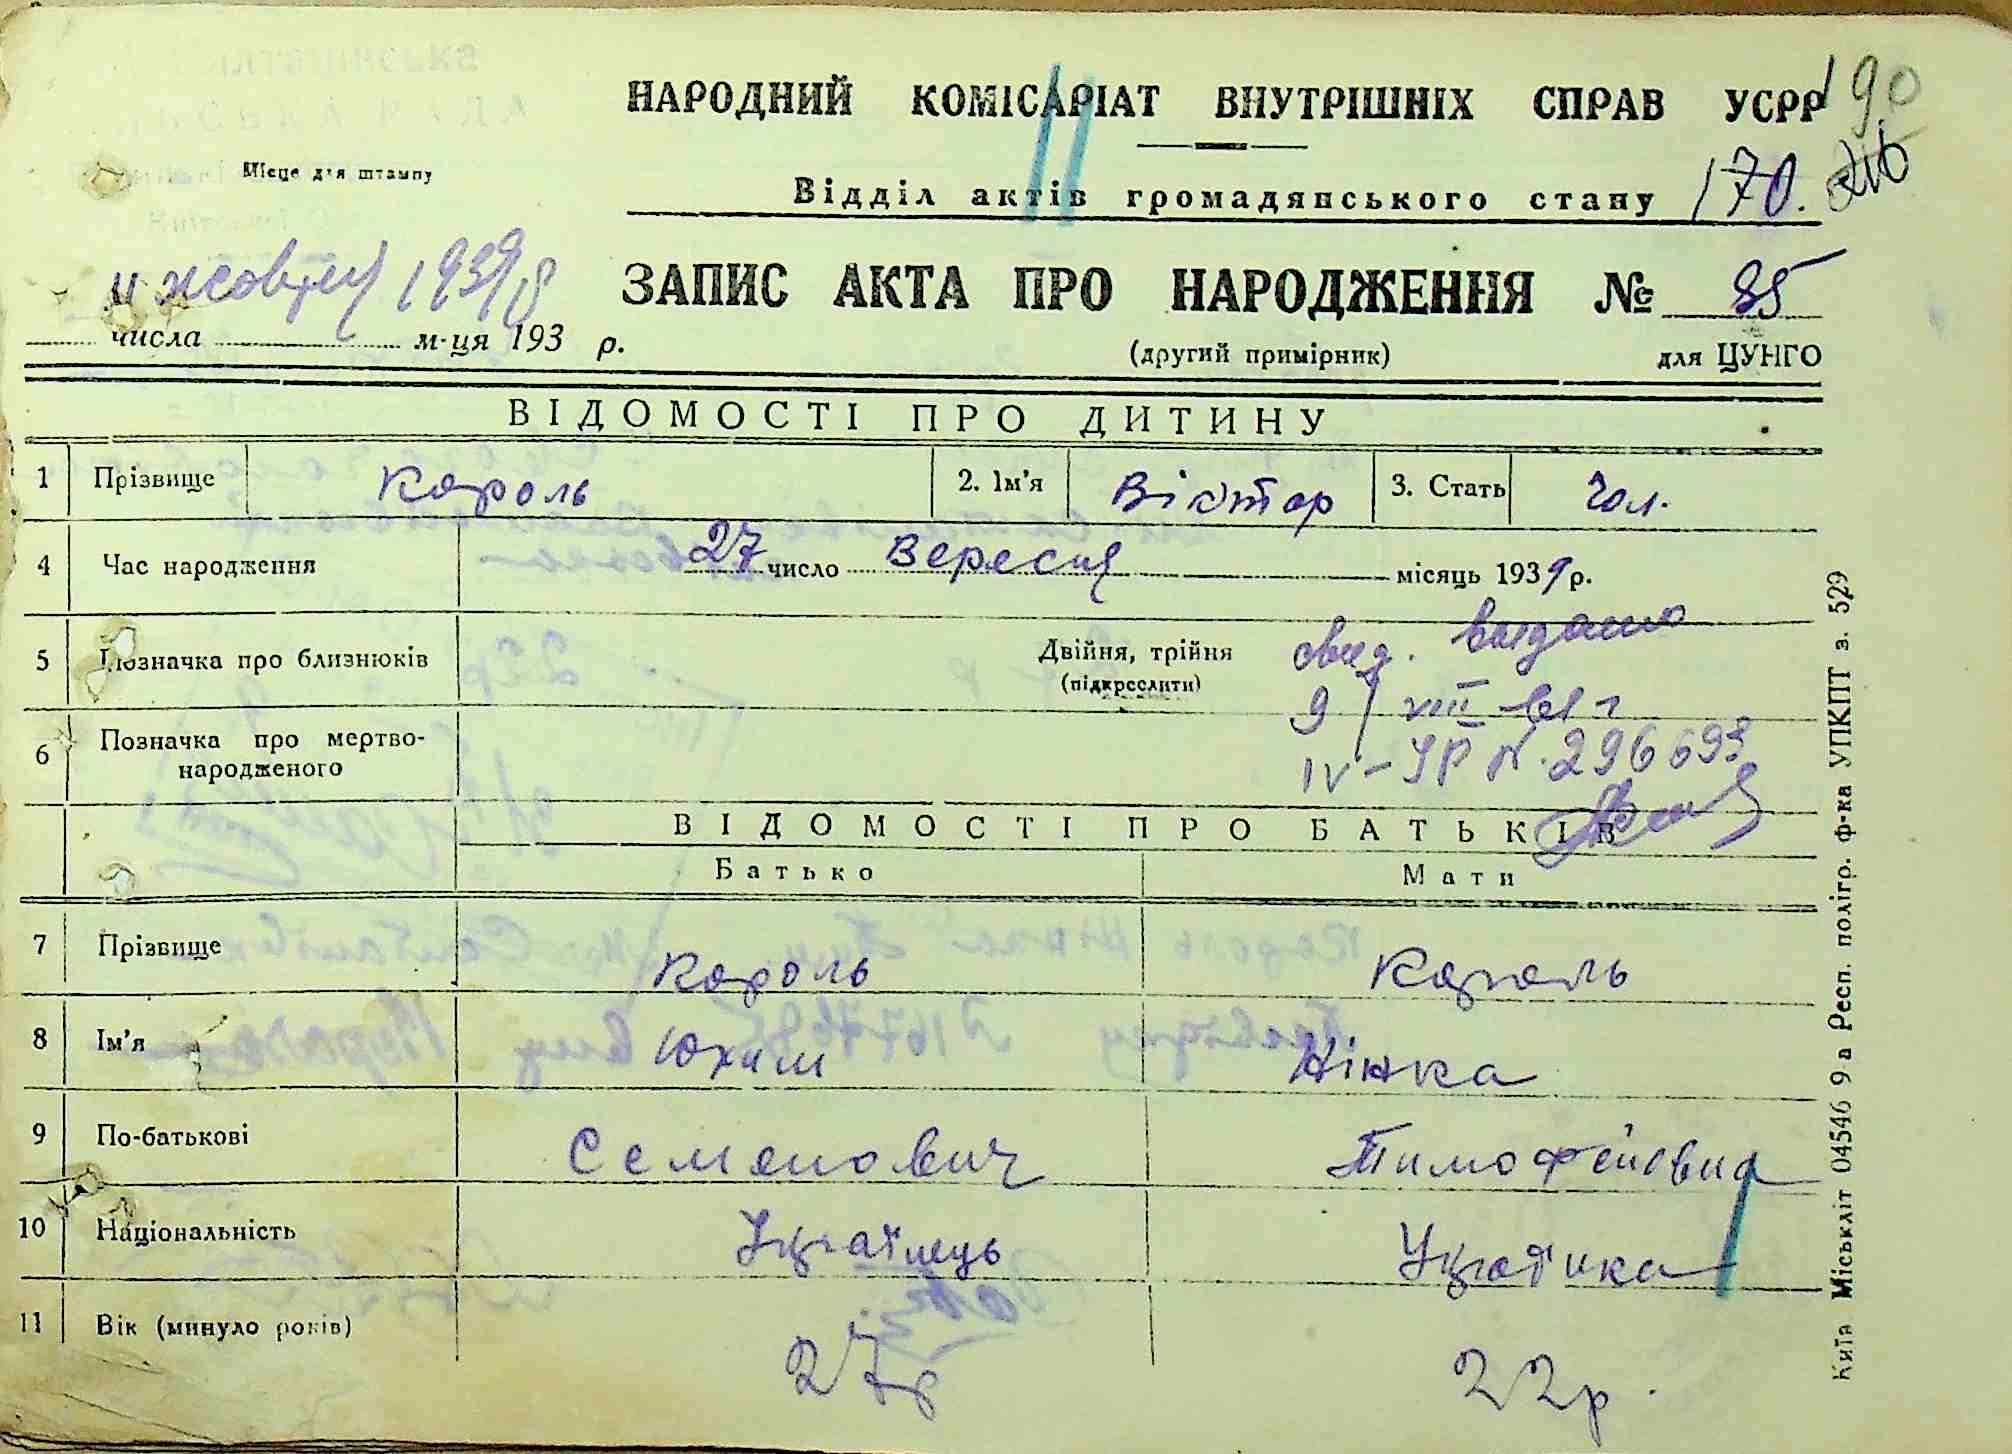 НАРОДНИЙ КОМІСАРІАТ ВНУТРІШНІХ СПРАВ УСРР 190
Місце для штампу
Відділ актів громадянського стану 170.
11 жовтня 1939 р
ЗАПИС АКТА ПРО НАРОДЖЕННЯ № 85
числа м-ця 193 р.
(другий примірник) для ЦУНГО
ВІДОМОСТІ ПРО ДИТИНУ
1 Прізвище Король 2. Ім'я Віктор 3. Стать Чол.
4 Час народження 27 число Вересня місяць 1939 р.
5 Позначка про близнюків Двійня, трійня (підкреслити)
свид. выдано
9/VIII-61 г
IV-УР N. 296693
6 Позначка про мертвонародженого
ВІДОМОСТІ ПРО БАТЬКІВ
Батько Мати
7 Прізвище Король Король
8 Ім'я Юхим Нінка
9 По-батькові Семенович Тимофеївна
10 Національність Українець Українка
11 Вік (минуло років) 27р 22р.
Київ Міськліт 04546 9 а Респ. полігр. ф-ка УПКПТ з. 529